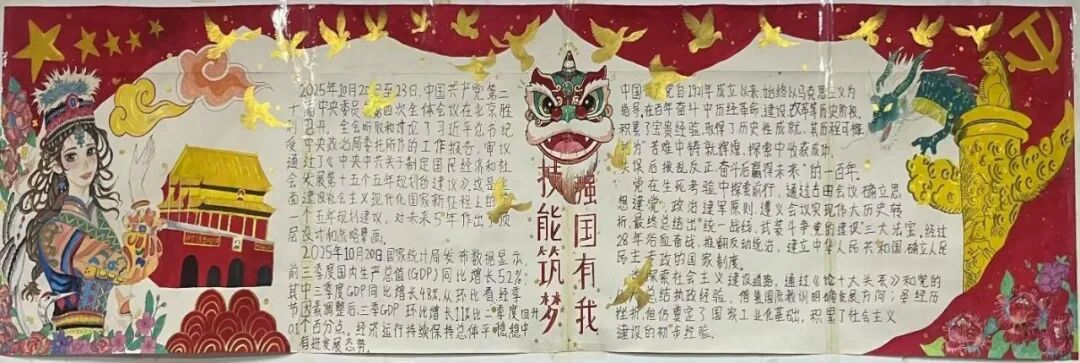 2025年10月20日至23日,中国共产党第二
十届中央委员会第四次全体会议在北京胜
利召开。全会听取和讨论了习近平总书记
受中央政治局委托所作的工作报告,审议
通过了《中共中央关于制定国民经济和社
会发展第十五个五年规划的建议》,这是全
面建设社会主义现代化国家新征程上的又
一个五年规划建议,对未来5年作出了顶
层设计和战略擘画。
2025年10月20日国家统计局发布数据显示,
前三季度国内生产总值(GDP)同比增长5.2%:
其中三季度GDP同比增长4.8%,从环比看,经季
节因素调整后,三季GDP环比增长1.1%比二季度回升
0.1个百分点,经济运行持续保持总体平稳,稳中
有进发展态势。
技能筑梦
强国有我
中国共产党自1921年成立以来始终以马克思主义为
指导,在百年奋斗中历经革命、建设、改革等历史阶段,
积累了宝贵经验,取得了历史性成就,其历程可概
括为“苦难中铸就辉煌,探索中收获成功,
失误后拨乱反正,奋斗后赢得未来”的一百年。
党在生死考验中探索前行,通过古田会议确立思
想建党、政治建军原则,遵义会议实现伟大历史转
折,最终总结出“统一战线,武装斗争,党的建设”三大法宝,经过
28年浴血奋战,推翻反动统治,建立中华人民共和国,确立人民
民主专政的国家制度。
探索社会主义建设道路,通过《论十大关系》和党的
总结执政经验,借鉴国际教训明确发展方向;虽经历
挫折,但仍奠定了国家工业化基础,积累了社会主义
建设的初步经验。